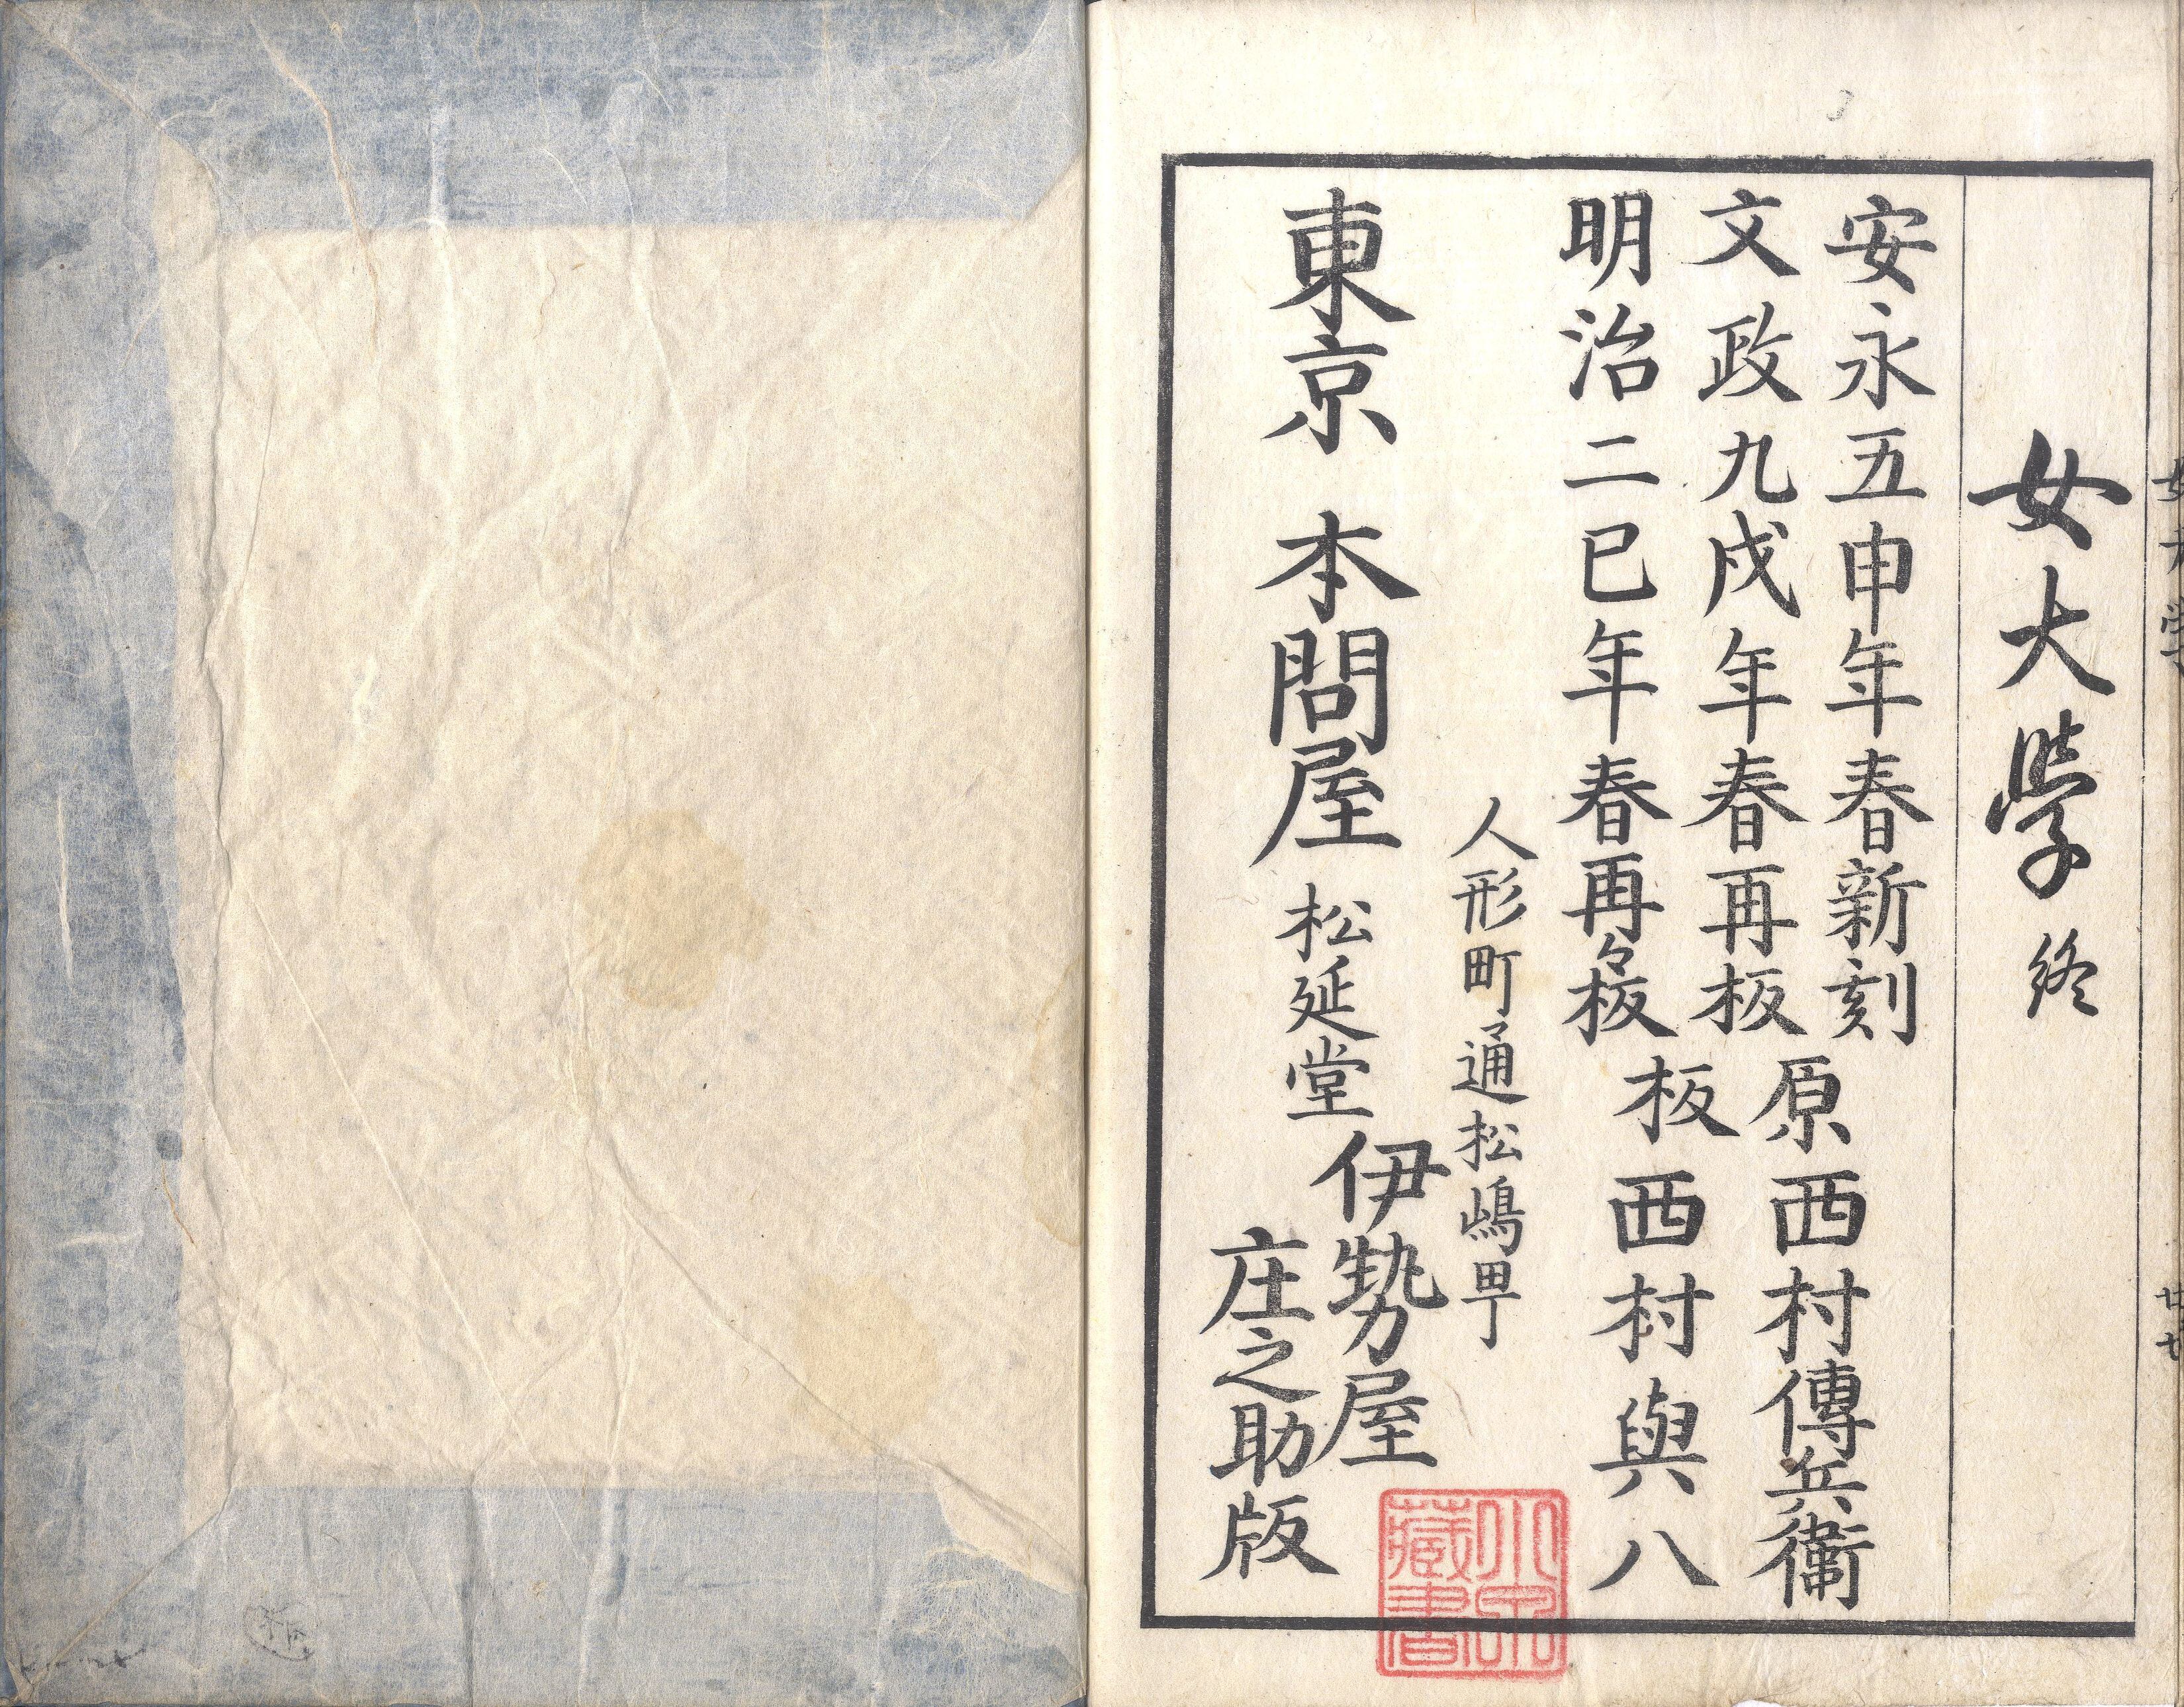 女大學終
安永五申年春新刻
文政九戌年春再板
明治二巳年春再々板
原板
西村傳兵衛
西村與八
人形町通松嶋町
東京 本問屋 松延堂
伊勢屋
庄之助版
藏書
女大学
廿七